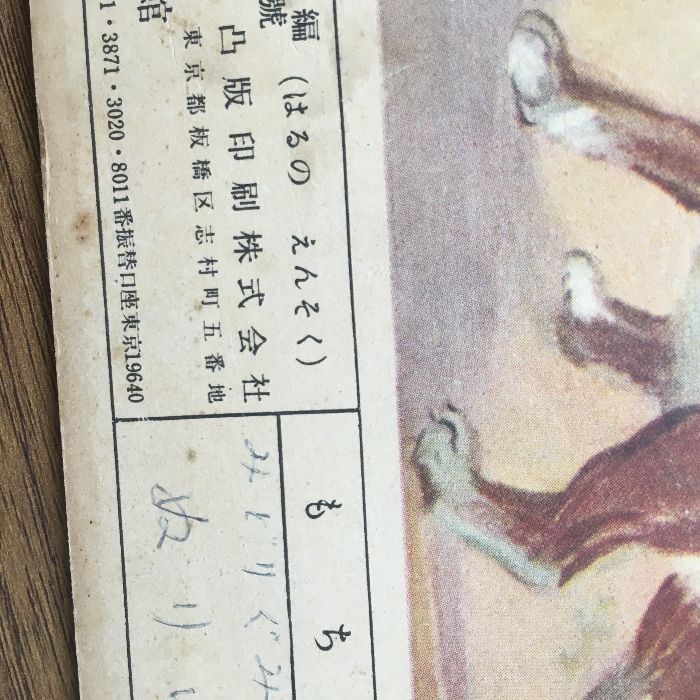 編 (はるの えんそく)
號
凸版印刷株式会社
東京都板橋区志村町五番地
1・3871・3020・8011番振替口座東京19640
もち
みどりぐみ
ぬり